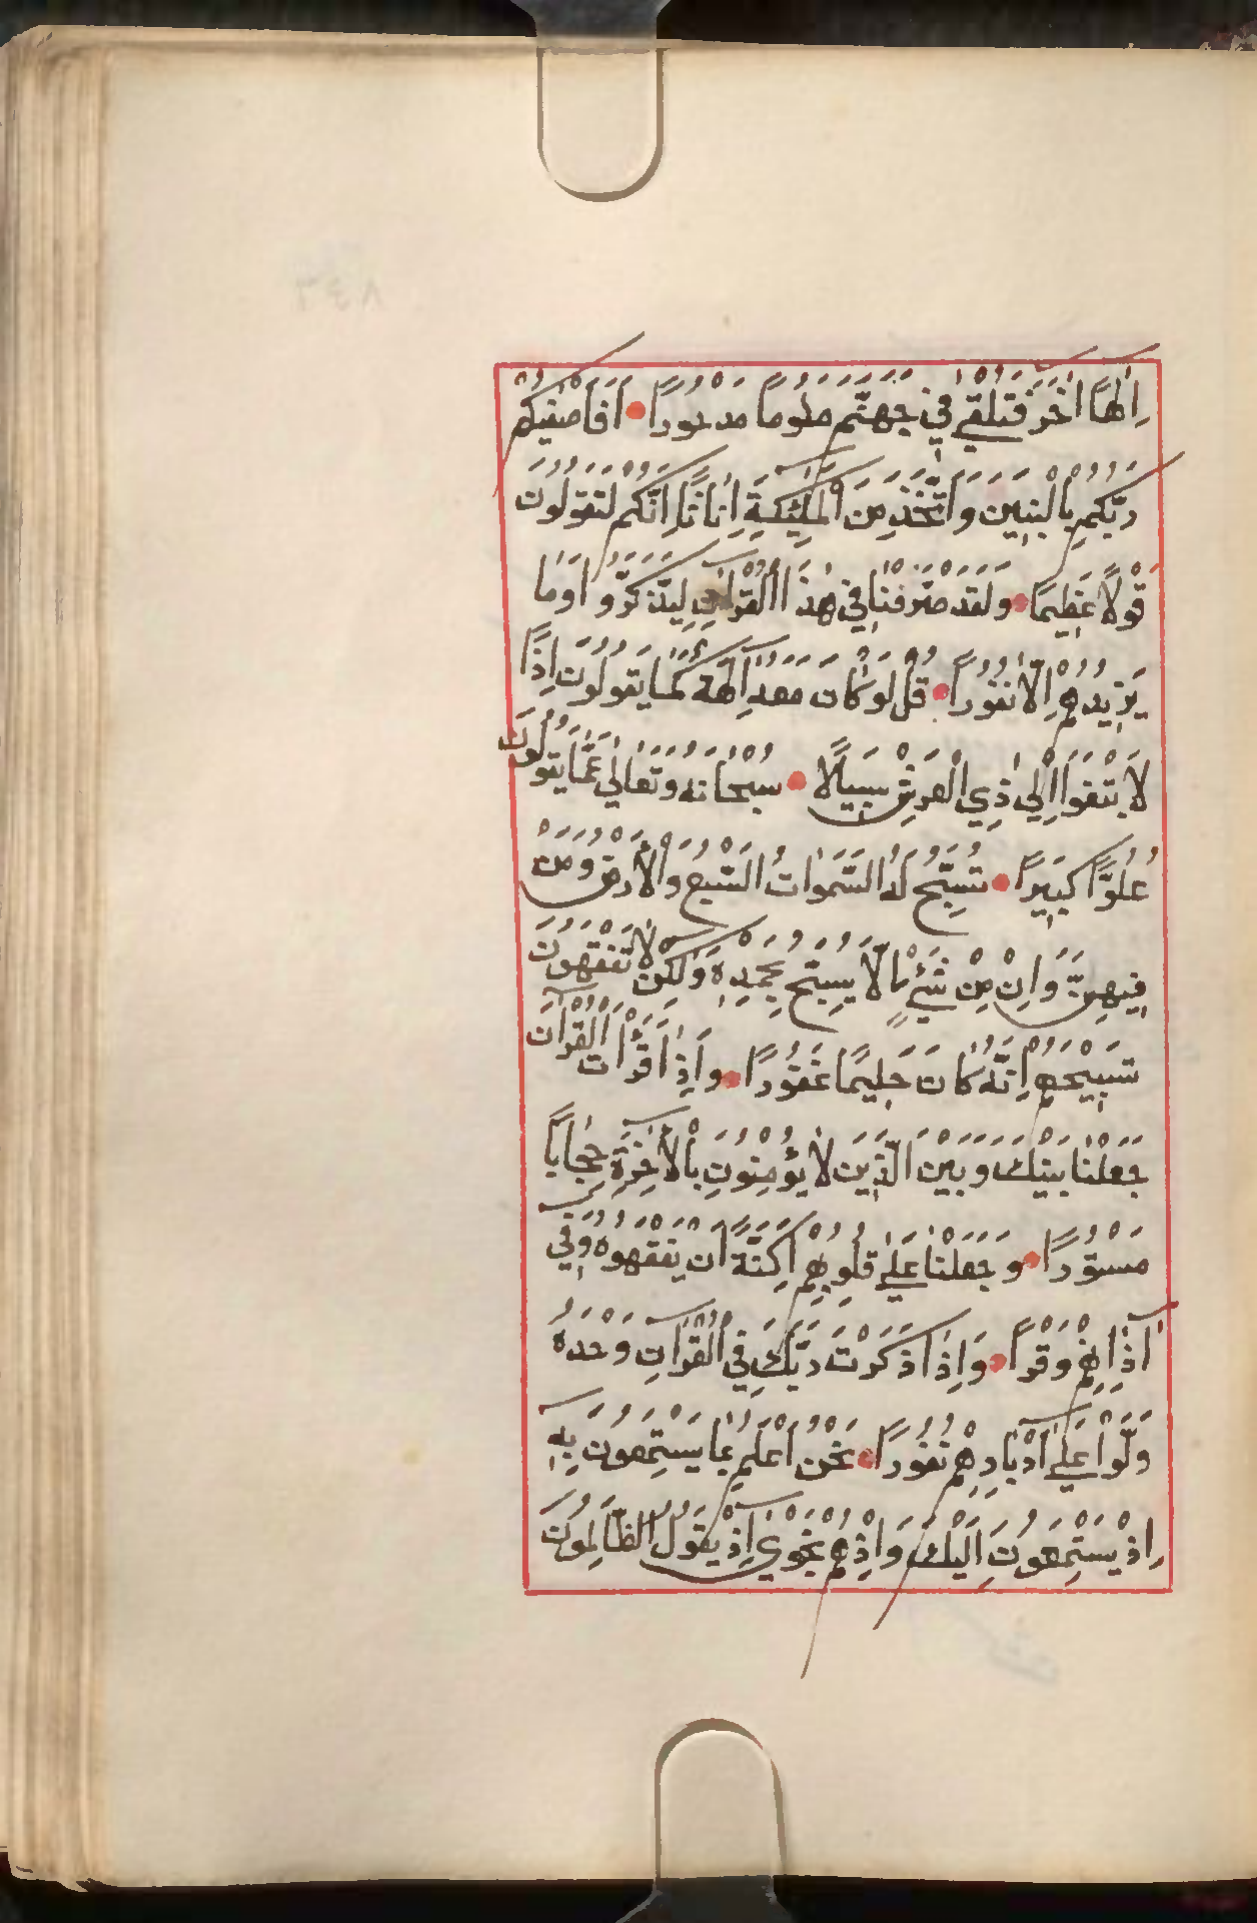 اِلٰهًا اٰخَرَ فَتُلْقٰى فِي جَهَنَّمَ مَلُومًا مَدْحُورًا اَفَاَصْفٰيكُمْ
رَبُّكُمْ بِالْبَنِينَ وَاتَّخَذَ مِنَ الْمَلٰئِكَةِ اِنَاثًا اِنَّكُمْ لَتَقُولُونَ
قَوْلًا عَظِيمًا وَلَقَدْ صَرَّفْنَا فِي هٰذَا الْقُرْاٰنِ لِيَذَّكَّرُوا وَمَا
يَزِيدُهُمْ اِلَّا نُفُورًا قُلْ لَوْ كَانَ مَعَهُ اٰلِهَةٌ كَمَا يَقُولُونَ اِذًا
لَابْتَغَوْا اِلٰى ذِي الْعَرْشِ سَبِيلًا سُبْحَانَهُ وَتَعَالٰى عَمَّا يَقُولُونَ
عُلُوًّا كَبِيرًا تُسَبِّحُ لَهُ السَّمٰوَاتُ السَّبْعُ وَالْاَرْضُ وَمَنْ
فِيهِنَّ وَاِنْ مِنْ شَيْءٍ اِلَّا يُسَبِّحُ بِحَمْدِهِ وَلٰكِنْ لَا تَفْقَهُونَ
تَسْبِيحَهُمْ اِنَّهُ كَانَ حَلِيمًا غَفُورًا وَاِذَا قَرَاْتَ الْقُرْاٰنَ
جَعَلْنَا بَيْنَكَ وَبَيْنَ الَّذِينَ لَا يُؤْمِنُونَ بِالْاٰخِرَةِ حِجَابًا
مَسْتُورًا وَجَعَلْنَا عَلٰى قُلُوبِهِمْ اَكِنَّةً اَنْ يَفْقَهُوهُ وَفِي
اٰذَانِهِمْ وَقْرًا وَاِذَا ذَكَرْتَ رَبَّكَ فِي الْقُرْاٰنِ وَحْدَهُ
وَلَّوْا عَلٰى اَدْبَارِهِمْ نُفُورًا نَحْنُ اَعْلَمُ بِمَا يَسْتَمِعُونَ بِهِ
اِذْ يَسْتَمِعُونَ اِلَيْكَ وَاِذْ هُمْ نَجْوٰى اِذْ يَقُولُ الظَّالِمُونَ